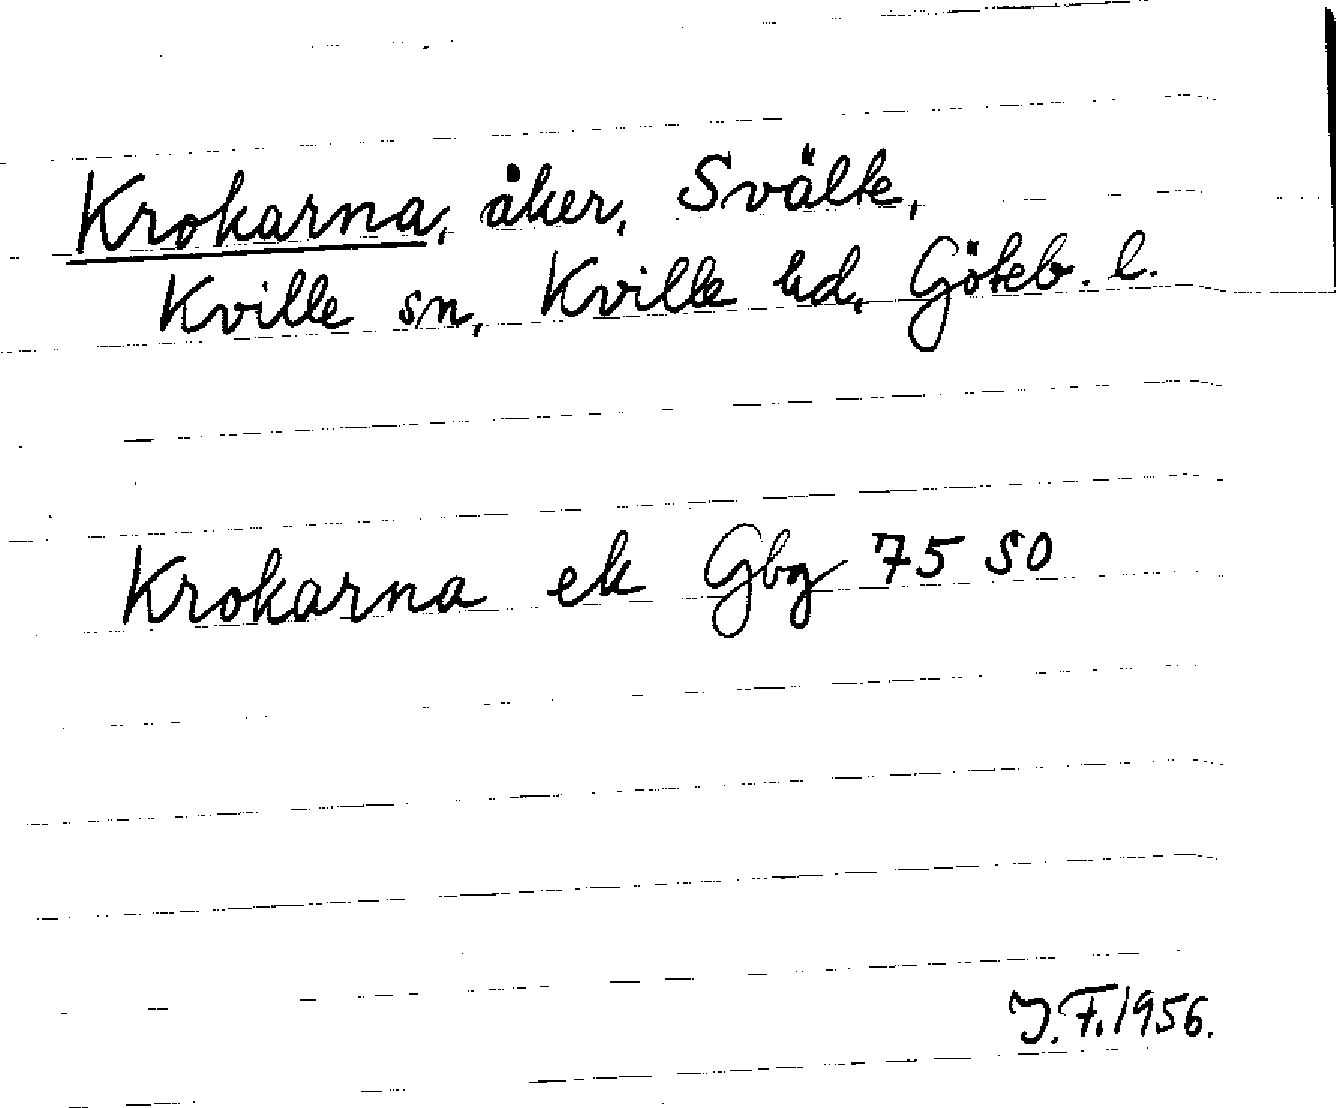 Krokarna, åker, Svälte,
Kville sn, Kville hd, Göteb. l.
Krokarna ek Gbg 75 SO
J.F. 1956.